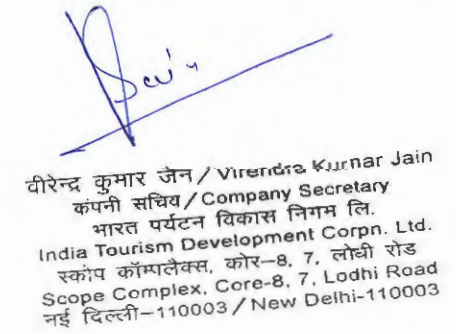 वीरेन्द्र कुमार जैन / Virendra Kumar Jain
कंपनी सचिव / Company Secretary
भारत पर्यटन विकास निगम लि.
India Tourism Development Corpn. Ltd.
स्कोप कॉम्पलैक्स, कोर-8, 7, लोधी रोड
Scope Complex, Core-8, 7, Lodhi Road
नई दिल्ली-110003 / New Delhi-110003